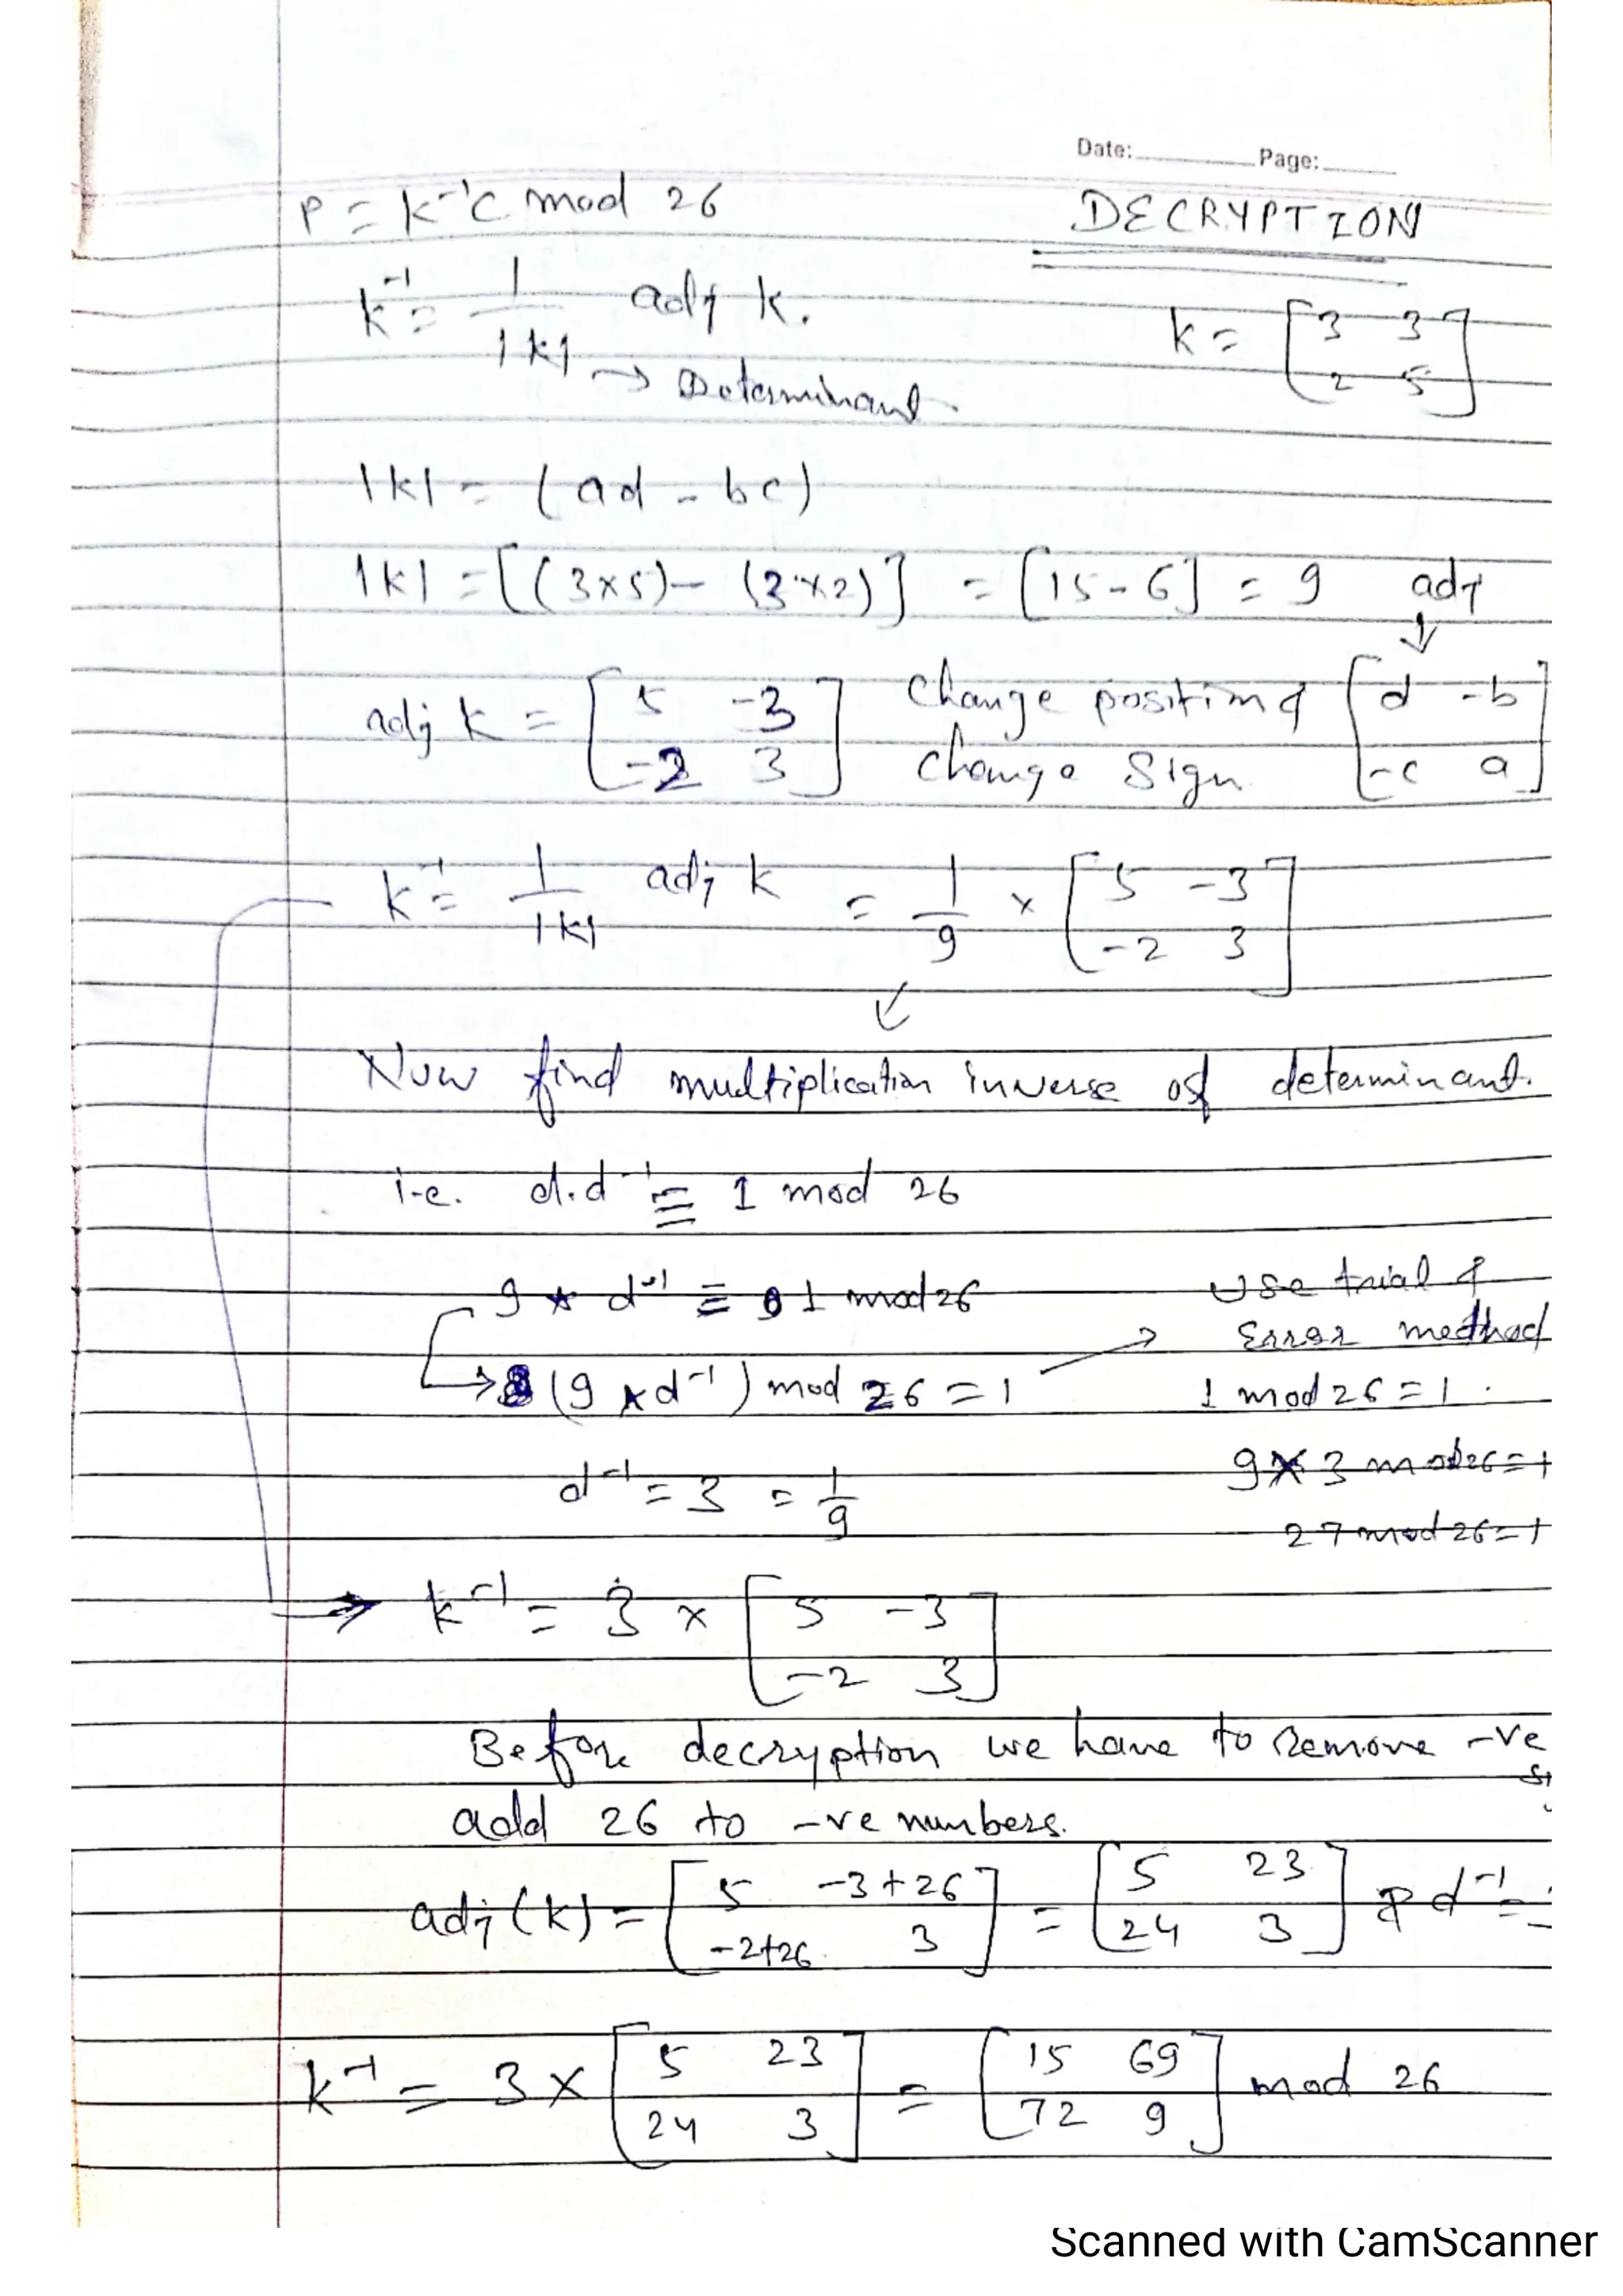 Date: Page:
P = K⁻¹C mod 26 DECRYPTION
K⁻¹ = 1/|K| adj K. K = [3 3
→ Determinant. 2 5]
|K| = (ad - bc)
|K| = [(3×5) - (3×2)] = [15 - 6] = 9 adj
↓
adj K = [5 -3 Change position & [d -b
-2 3] Change Sign -c a]
K⁻¹ = 1/|K| adj K = 1/9 × [5 -3
-2 3]
Now find multiplication inverse of determinant.
i.e. d.d⁻¹ ≡ 1 mod 26
9 * d⁻¹ ≡ 1 mod 26 Use trial &
Error method
→ (9 * d⁻¹) mod 26 = 1 1 mod 26 = 1.
9 × 3 mod 26 = 1
d⁻¹ = 3 = 1/9
27 mod 26 = 1
→ K⁻¹ = 3 × [5 -3
-2 3]
Before decryption we have to remove -ve
add 26 to -ve numbers.
adj(K) = [5 -3+26 = [5 23 d⁻¹ =
-2+26 3] 24 3]
K⁻¹ = 3 × [5 23 = [15 69 mod 26
24 3] 72 9]
Scanned with CamScanner